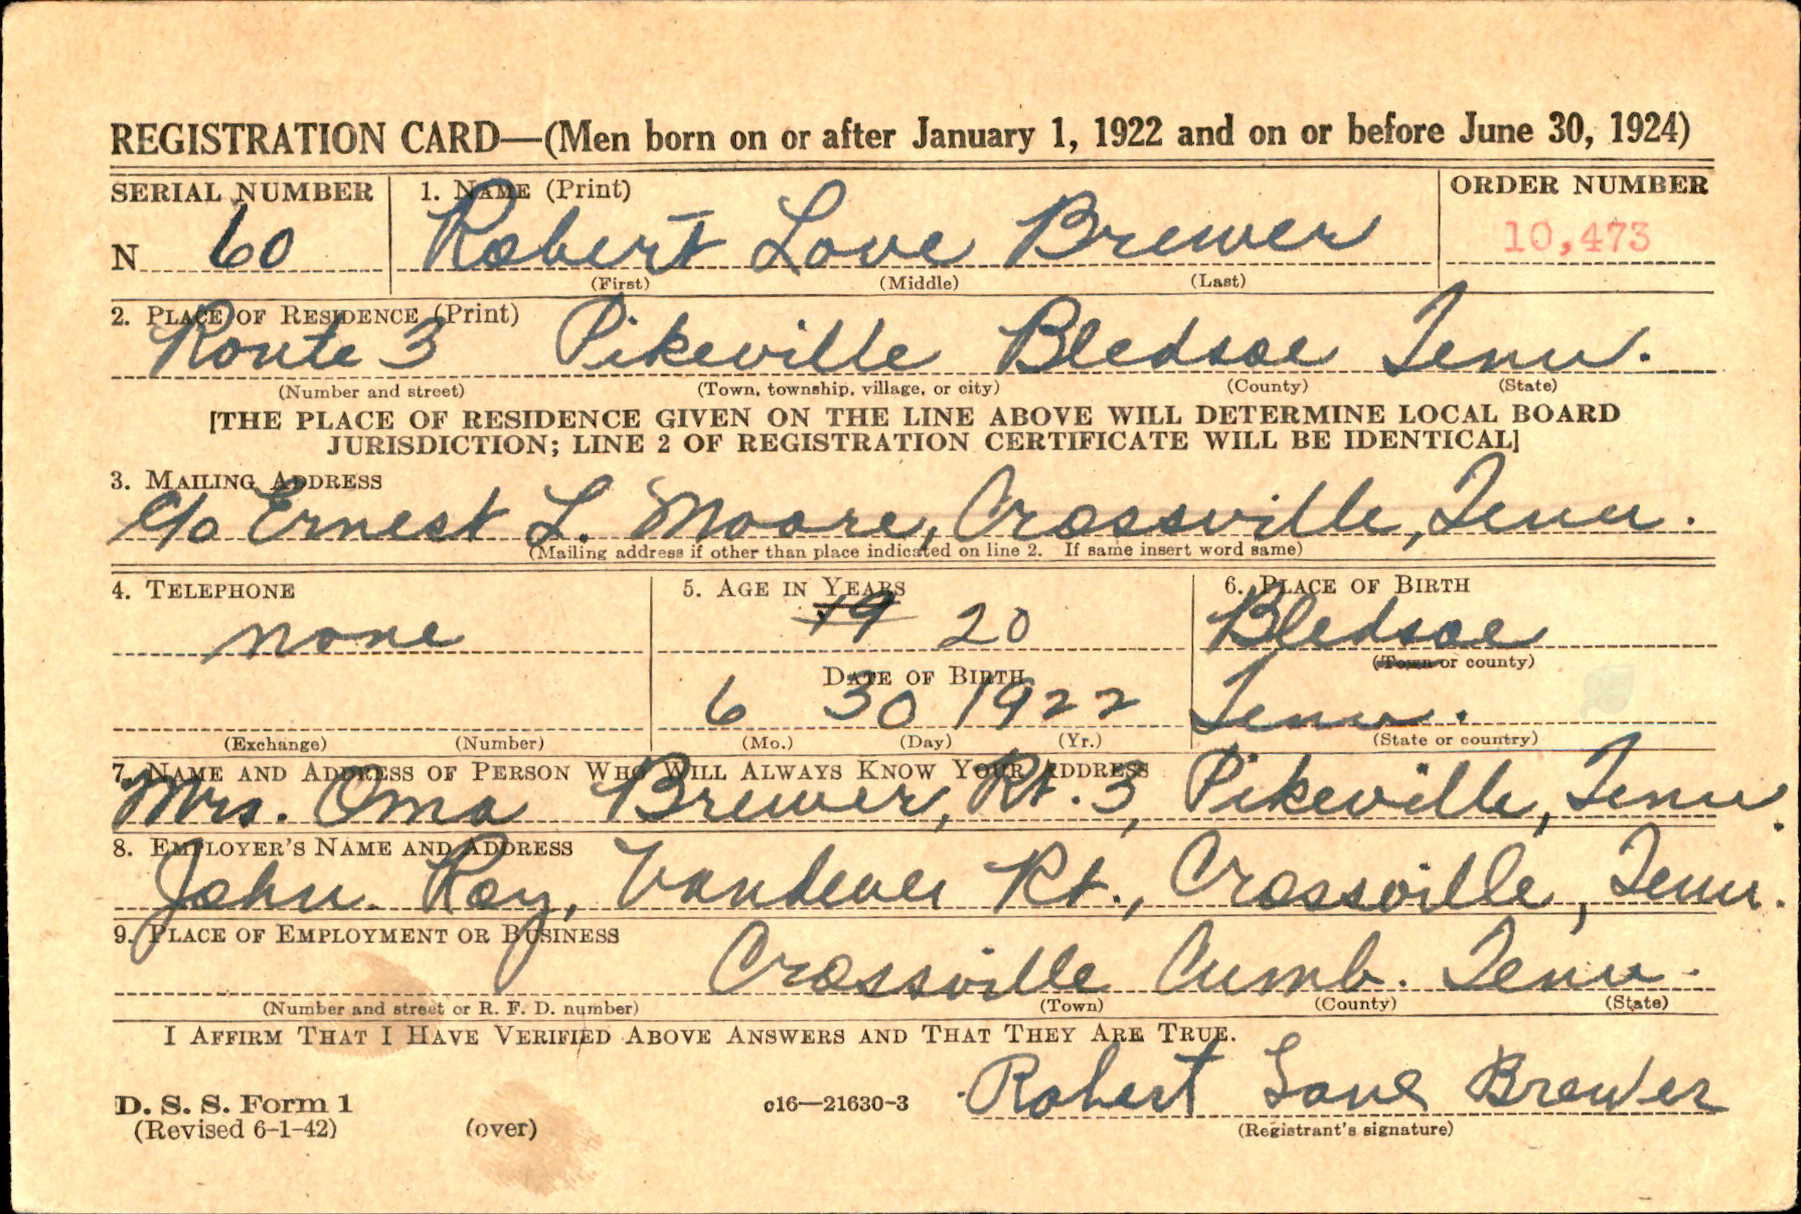 REGISTRATION CARD—(Men born on or after January 1, 1922 and on or before June 30, 1924)
SERIAL NUMBER 1. NAME (Print) ORDER NUMBER
N 60 Robert Love Brewer 10,473
(First) (Middle) (Last)
2. PLACE OF RESIDENCE (Print)
Route 3 Pikeville Bledsoe Tenn.
(Number and street) (Town, township, village, or city) (County) (State)
[THE PLACE OF RESIDENCE GIVEN ON THE LINE ABOVE WILL DETERMINE LOCAL BOARD
JURISDICTION; LINE 2 OF REGISTRATION CERTIFICATE WILL BE IDENTICAL]
3. MAILING ADDRESS
c/o Ernest L. Moore, Crossville, Tenn.
(Mailing address if other than place indicated on line 2. If same insert word same)
4. TELEPHONE 5. AGE IN YEARS 6. PLACE OF BIRTH
none 19 20 Bledsoe
(Town or county)
DATE OF BIRTH
6 30 1922 Tenn.
(Exchange) (Number) (Mo.) (Day) (Yr.) (State or country)
7. NAME AND ADDRESS OF PERSON WHO WILL ALWAYS KNOW YOUR ADDRESS
Mrs. Oma Brewer, Rt. 3, Pikeville, Tenn.
8. EMPLOYER'S NAME AND ADDRESS
John Roy, Vandever Rt., Crossville, Tenn.
9. PLACE OF EMPLOYMENT OR BUSINESS
Crossville Cumb. Tenn.
(Number and street or R. F. D. number) (Town) (County) (State)
I AFFIRM THAT I HAVE VERIFIED ABOVE ANSWERS AND THAT THEY ARE TRUE.
Robert Love Brewer
D. S. S. Form 1 c16—21630-3
(Revised 6-1-42) (over) (Registrant's signature)